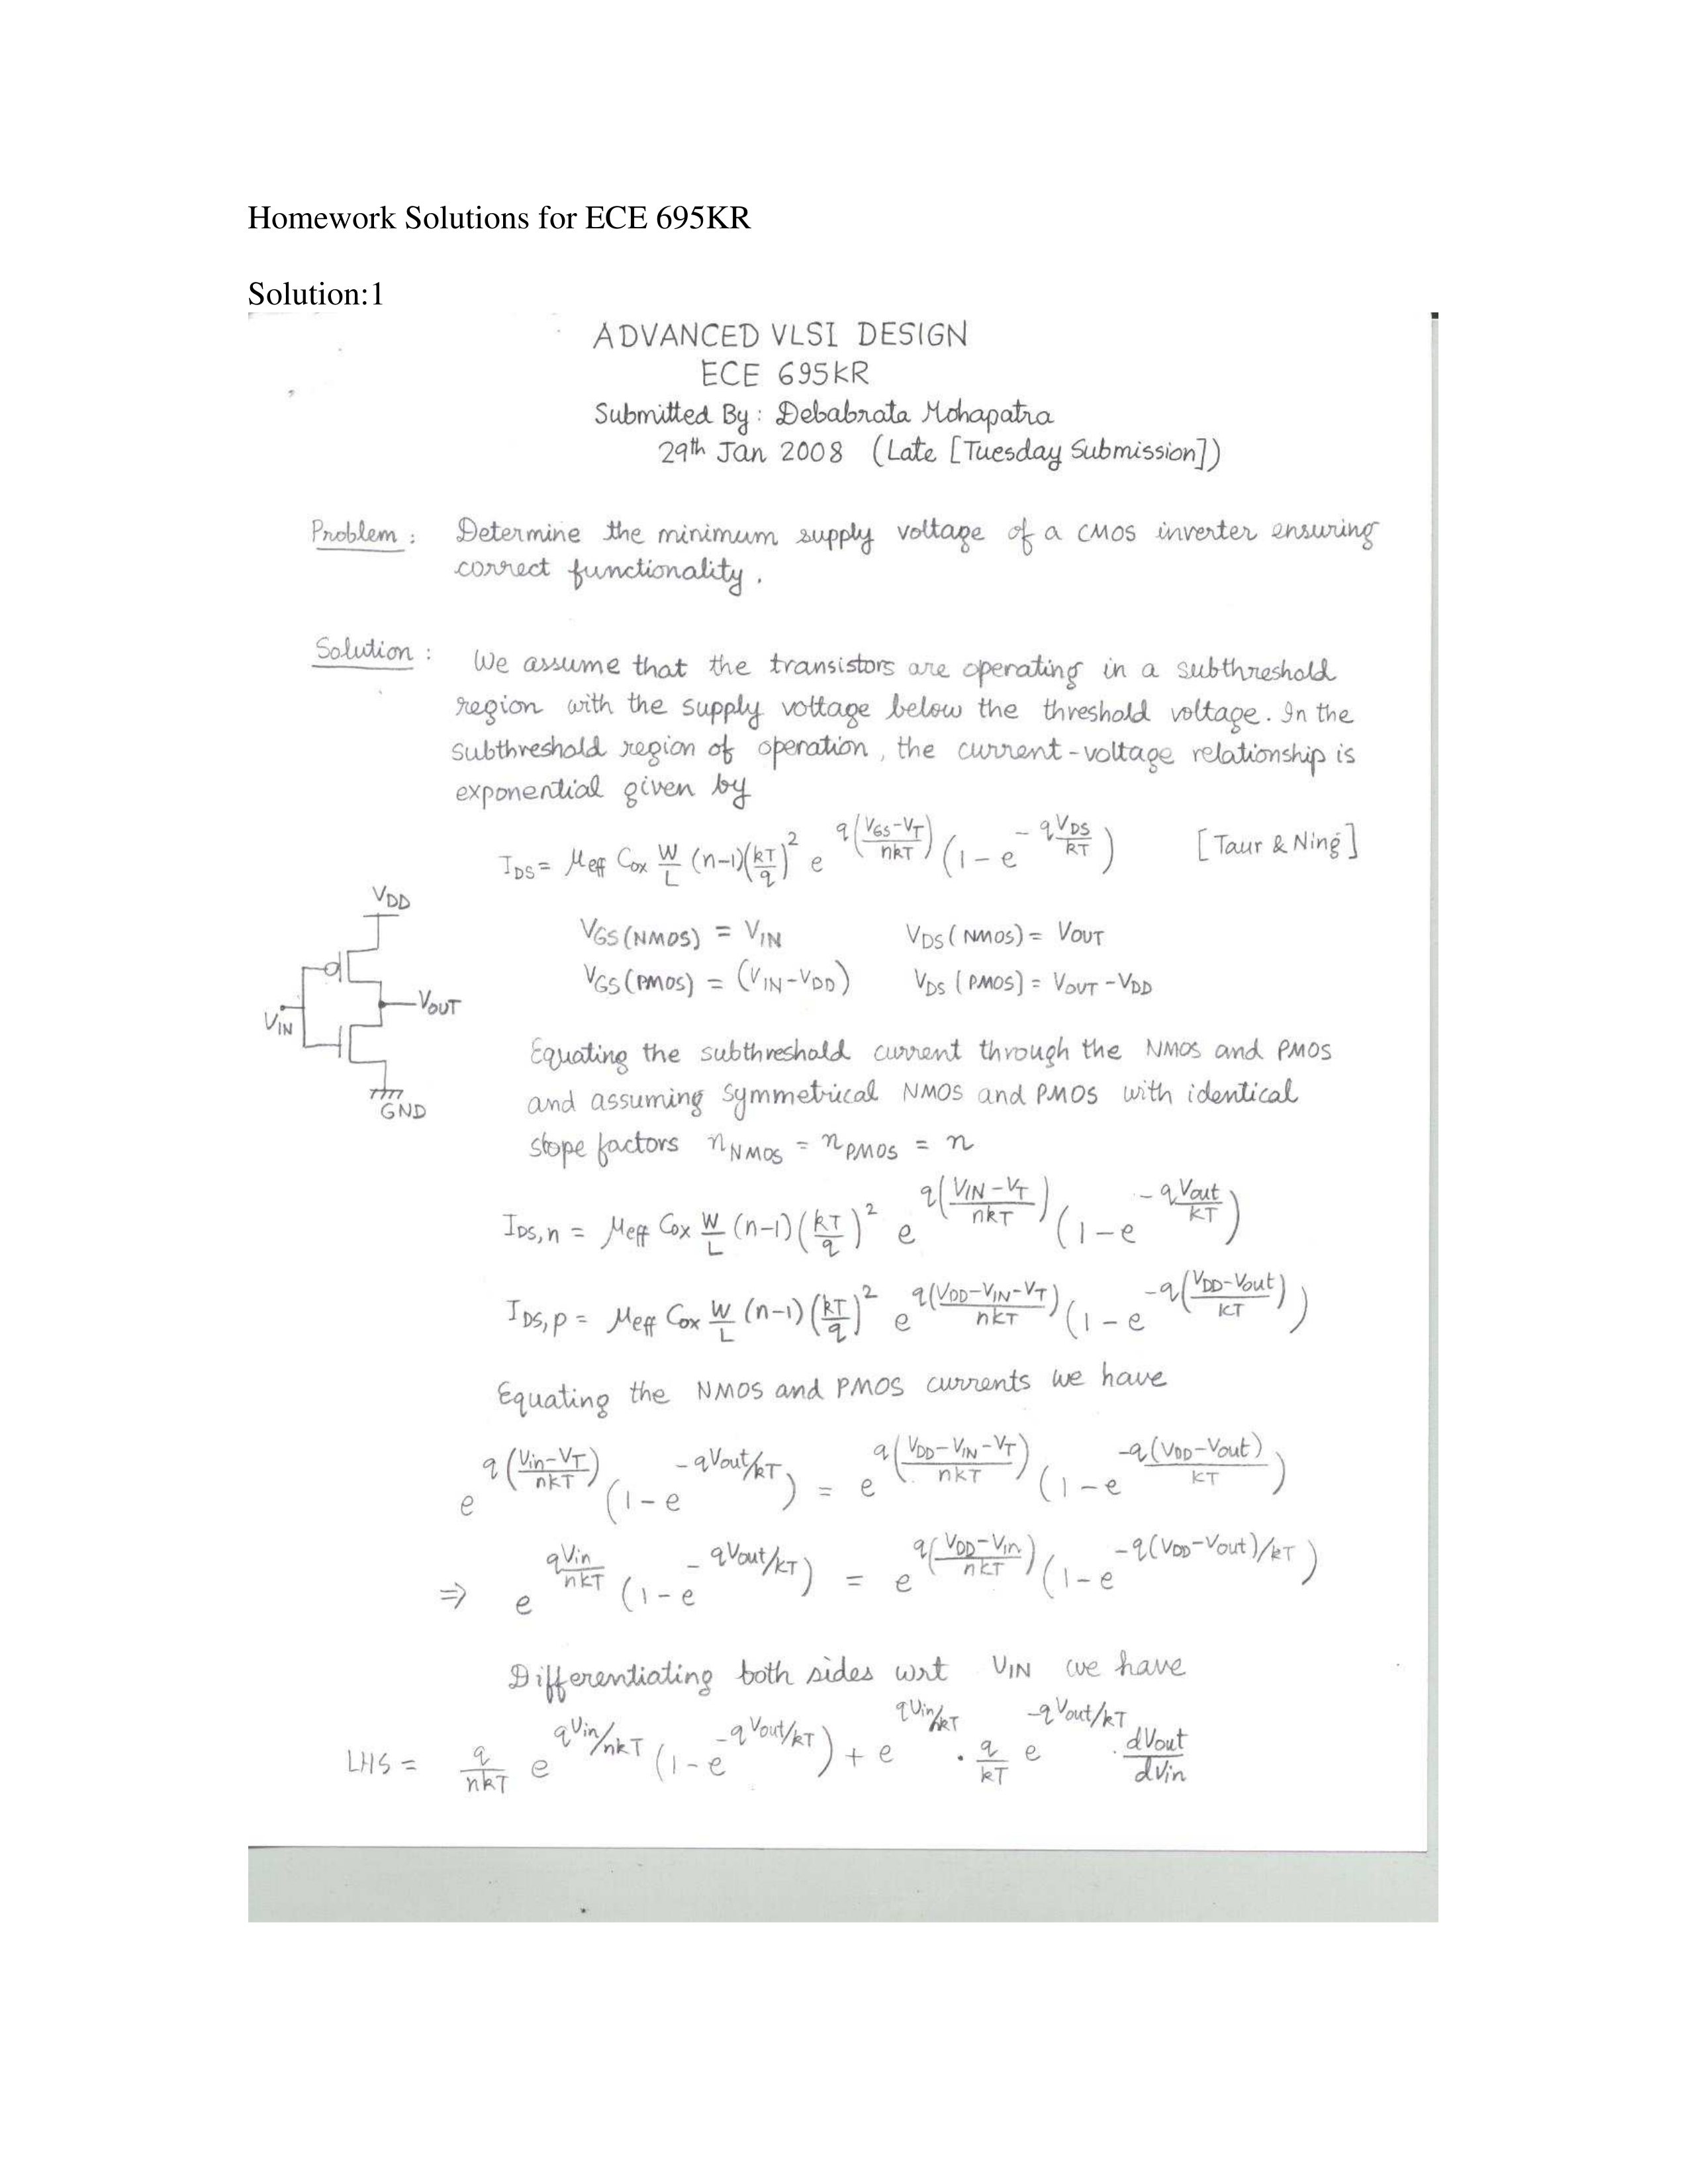 Homework Solutions for ECE 695KR
Solution:1
ADVANCED VLSI DESIGN
ECE 695KR
Submitted By: Debabrata Mohapatra
29th Jan 2008 (Late [Tuesday Submission])
Problem: Determine the minimum supply voltage of a CMOS inverter ensuring
correct functionality.
Solution: We assume that the transistors are operating in a subthreshold
region with the supply voltage below the threshold voltage. In the
subthreshold region of operation, the current-voltage relationship is
exponential given by
I_DS = μ_eff C_ox W/L (n-1)(kT/q)^2 e^{q((V_GS-V_T)/nkT)} (1-e^{-qV_DS/kT}) [Taur & Ning]
V_DD
V_GS(NMOS) = V_IN V_DS(NMOS) = V_OUT
V_GS(PMOS) = (V_IN-V_DD) V_DS(PMOS] = V_OUT-V_DD
V_OUT
V_IN
GND
Equating the subthreshold current through the NMOS and PMOS
and assuming symmetrical NMOS and PMOS with identical
slope factors n_NMOS = n_PMOS = n
I_DS,n = μ_eff C_ox W/L (n-1)(kT/q)^2 e^{q((V_IN-V_T)/nkT)} (1-e^{-qV_out/kT})
I_DS,p = μ_eff C_ox W/L (n-1)(kT/q)^2 e^{q(V_DD-V_IN-V_T)/nkT} (1-e^{-q((V_DD-V_out)/kT)})
Equating the NMOS and PMOS currents we have
e^{q((V_in-V_T)/nkT)} (1-e^{-qV_out/kT}) = e^{q((V_DD-V_IN-V_T)/nkT)} (1-e^{-q(V_DD-V_out)/kT})
⇒ e^{qV_in/nkT} (1-e^{-qV_out/kT}) = e^{q((V_DD-V_in)/nkT)} (1-e^{-q(V_DD-V_out)/kT})
Differentiating both sides wrt V_IN we have
LHS = q/nkT e^{qV_in/nkT} (1-e^{-qV_out/kT}) + e^{qV_in/nkT} . q/kT e^{-qV_out/kT} . dV_out/dV_in